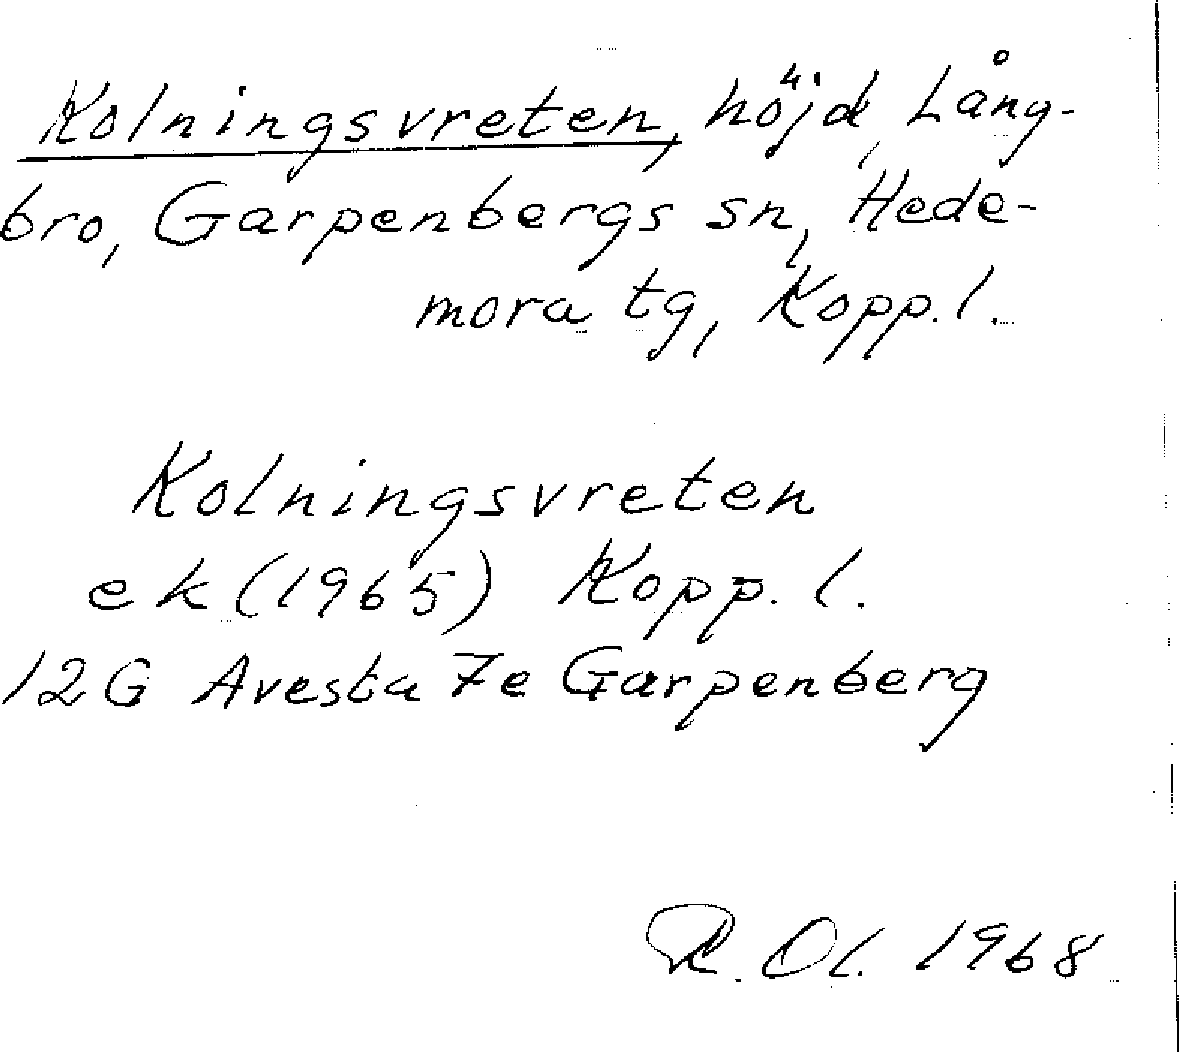 Kolningsvreten, höjd, Lång-
bro, Garpenbergs sn, Hede-
mora tg, Kopp.l.
Kolningsvreten
ek (1965) Kopp. l.
12G Avesta 7e Garpenberg
R. Ol. 1968